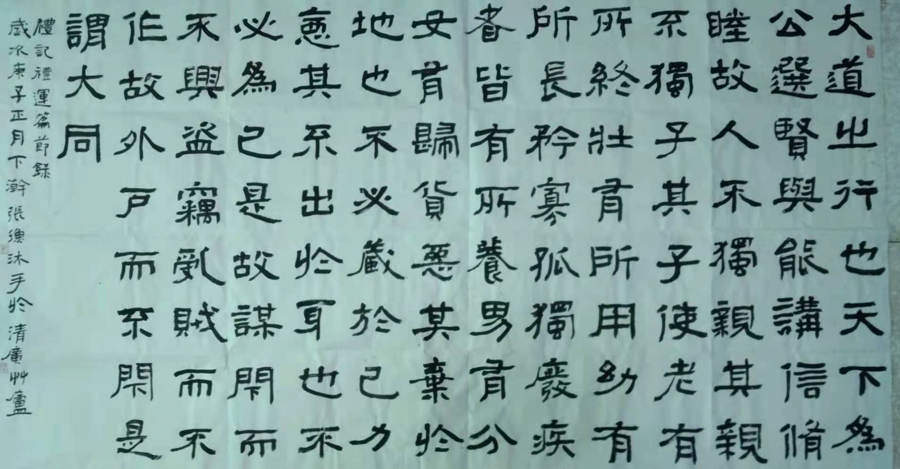 大道之行也天下為
公選賢與能講信脩
睦故人不獨親其親
不獨子其子使老有
所終壯有所用幼有
所長矜寡孤獨廢疾
者皆有所養男有分
女有歸貨惡其棄於
地也不必藏於己力
惡其不出於身也不
必為己是故謀閉而
不興盜竊亂賊而不
作故外戶而不閉是
謂大同
禮記禮運篇節錄
歲次庚子正月下澣張沐手於清廣艸廬